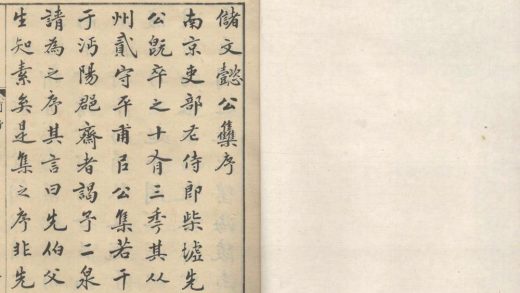 儲文懿公集序
南京吏部左侍郎柴墟先
公既卒之十有三季其從
州貳守平甫㠯公集若干
于沔陽郡齋者謁予二泉
請為之序其言曰先伯父
生知素矣是集之序非先